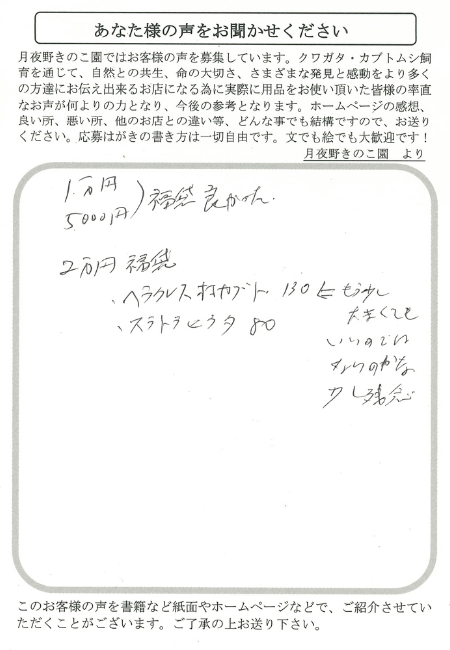 あなた様の声をお聞かせください
月夜野きのこ園ではお客様の声を募集しています。クワガタ・カブトムシ飼
育を通じて、自然との共生、命の大切さ、さまざまな発見と感動をより多く
の方達にお伝え出来るお店になる為に実際に用品をお使い頂いた皆様の率直
なお声が何よりの力となり、今後の参考となります。ホームページの感想、
良い所、悪い所、他のお店との違い等、どんな事でも結構ですので、お送り
ください。応募はがきの書き方は一切自由です。文でも絵でも大歓迎です！
月夜野きのこ園　より
1万円
5000円) 福袋 良かった.
2万円 福袋
、ヘラクレスオオカブト 130 ← もう少し
大きくても
、スラトラヒラタ 80
いいのでは
ないのかな
少し残念
このお客様の声を書籍など紙面やホームページなどで、ご紹介させてい
ただくことがございます。ご了承の上お送り下さい。